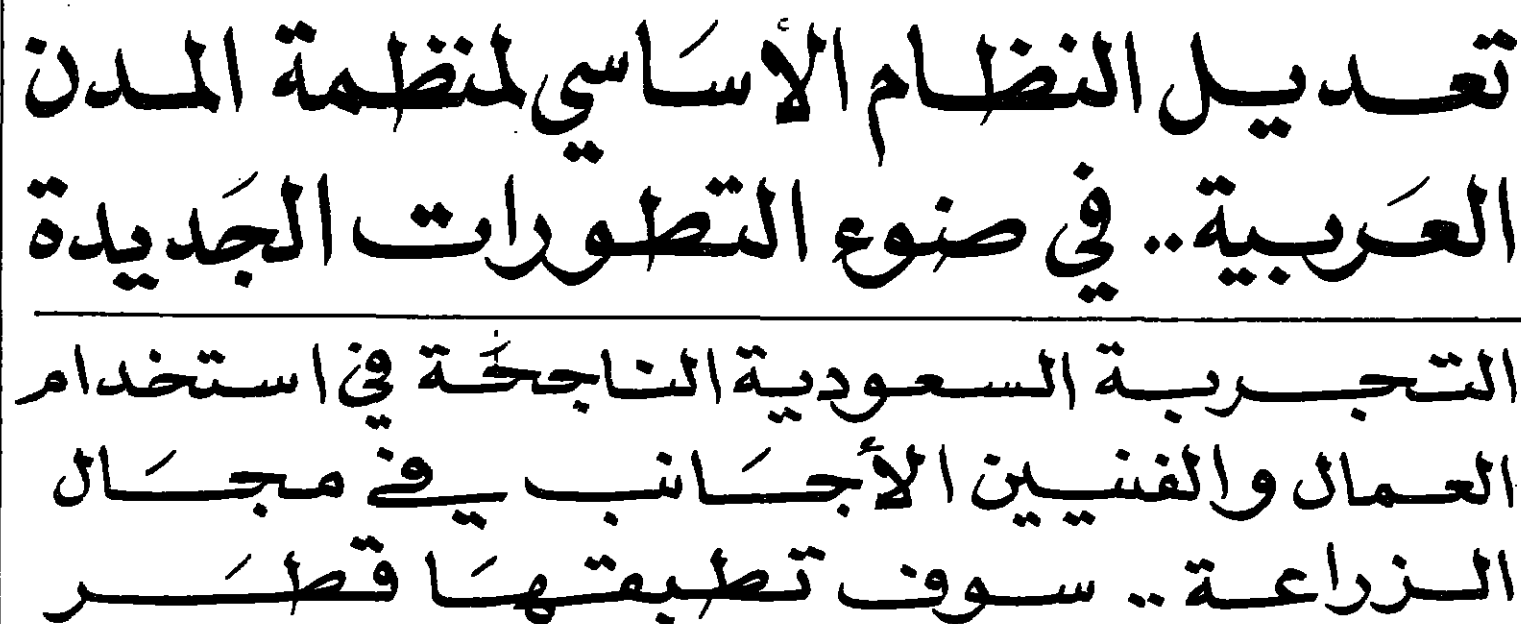 تعديل النظام الأساسي لمنظمة المدن
العربية.. في ضوء التطورات الجديدة
التجربة السعودية الناجحة في استخدام
العمال والفنيين الأجانب في مجال
الزراعة.. سوف تطبقها قطر